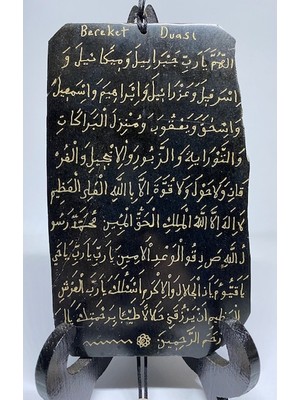 Bereket Duası
اللهم يا رب جبرائيل وميكائيل و
اسرفيل وعزرائيل وابراهيم واسمعيل
واسحق ويعقوب ومنزل البركات
والتوراية والزبور والانجيل والفر
قان ولا حول ولا قوة الا بالله العلي العظيم
لا اله الا الله الملك الحق المبين محمد رسو
ل الله صادقوالوعد الامين يا رب يا رب يا حي
يا قيوم يا ذالجلال والاكرم اسئلك يا رب العرش
العظيم ان يرزقني حلالا طيبا برحمتك يا ا
رحم الرحمين